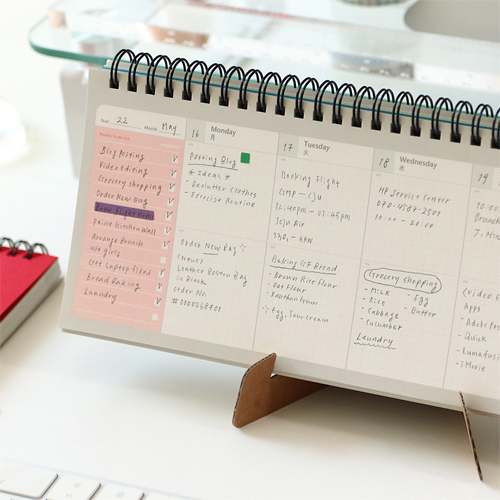 Year 22 Month May
Weekly To do List
Blog Posting
Video Editing
Grocery shopping
Order New Bag
Paint Kitchen Wall
Arrange Brunch
w/t girls
Get Laptop fixed
Bread Baking
Laundry
16 Monday
月
Posting Blog
* Ideas *
- Declutter Clothes
- Exercise Routine
Order New Bag
Leather Boston Bag
in Black
order No.
17 Tuesday
火
Booking Flight
GMP - CJU
12:40pm - 01:45pm
Jeju Air
Baking GF Bread
- Brown Rice Flour
- Oat Flour
- Xanthan Gum
Egg, Sour cream
18 Wednesday
水
HP Service Center
070-4587-2501
10:00 - 20:00
Grocery shopping
- Milk - Egg
- Rice
- Cabbage - Butter
- Cucumber
Laundry
19
10:00
Brunch
(Video
Apps
- Adobe
- Quick
- Lumafus
- iMovie